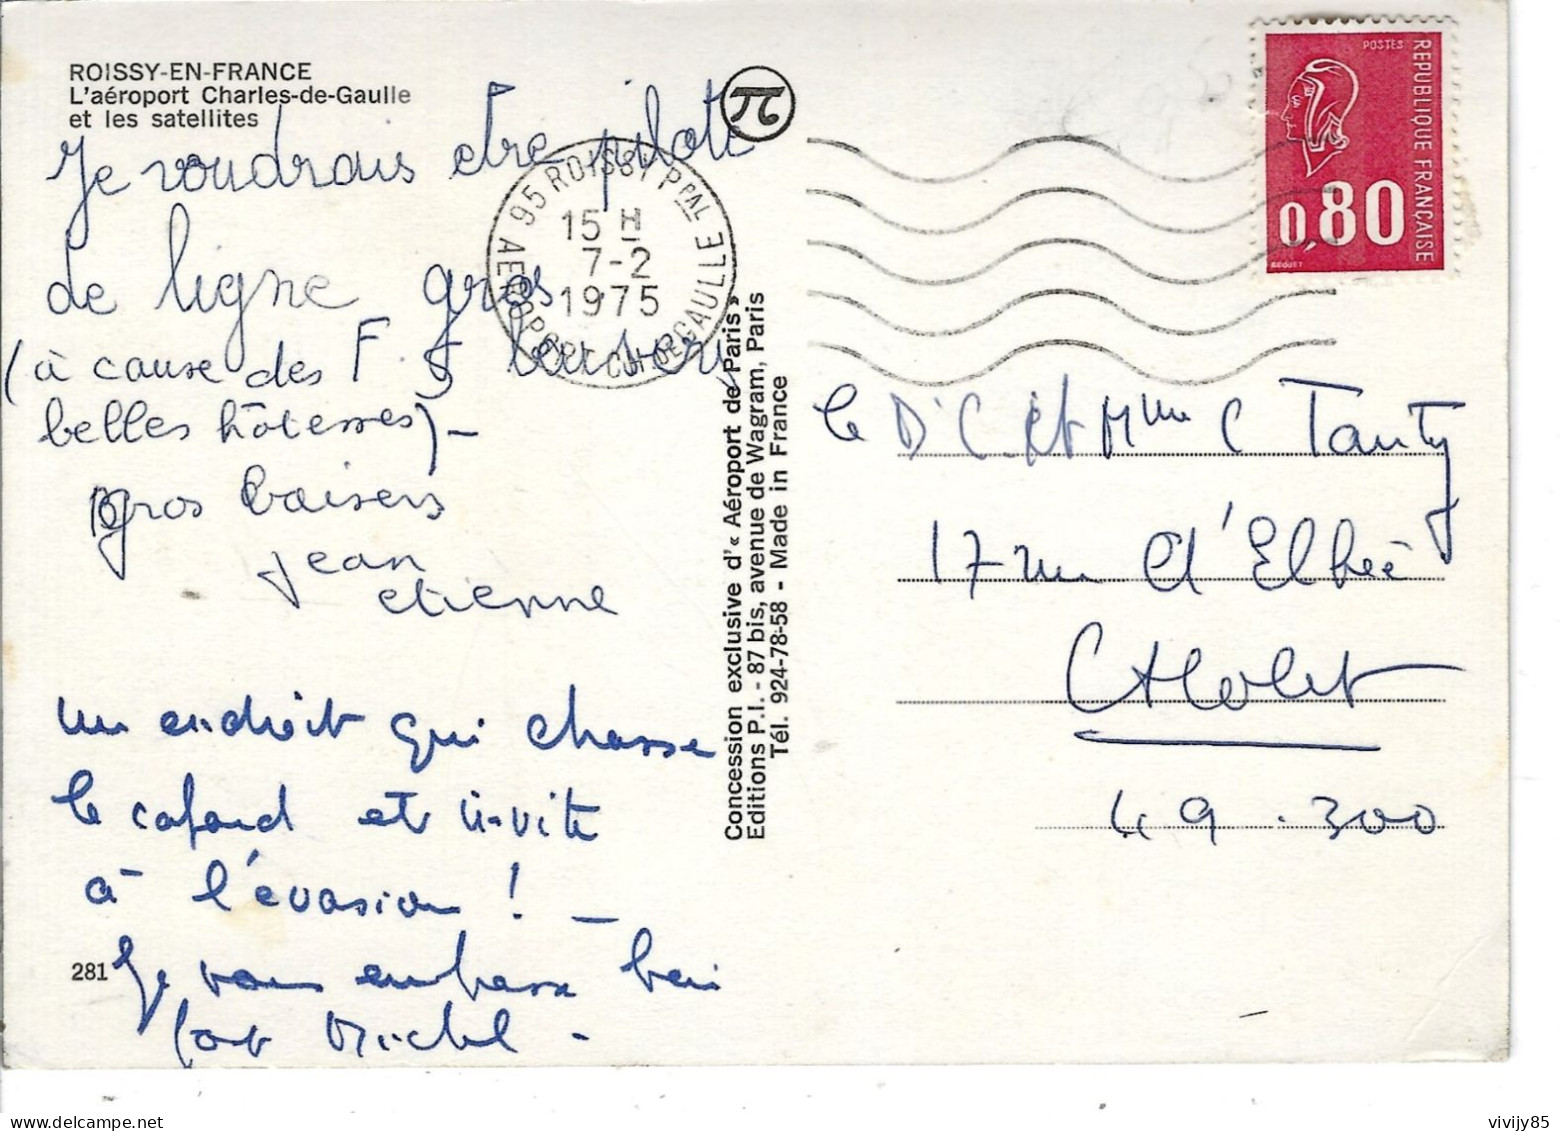 ROISSY-EN-FRANCE
L'aéroport Charles-de-Gaulle
et les satellites
Je voudrais etre pilote
de ligne gros
(à cause des F. baisers
belles hôtesses) -
gros baisers
jean
etienne
un endroit qui chasse
le cafard et invite
à l'évasion ! -
281
Je vous embrasse bien
fort Michel -
95 ROISSY Ppal
AEROPORT CH. DE GAULLE
15 H
7-2
1975
Concession exclusive d'« Aéroport de Paris »
Editions P.I. - 87 bis, avenue de Wagram, Paris
Tél. 924-78-58 - Made in France
POSTES
REPUBLIQUE FRANÇAISE
0,80
BEQUET
le Dr C. et Mme C Tauty
17 rue d'Elbée
CHolet
49.300
vivijy85